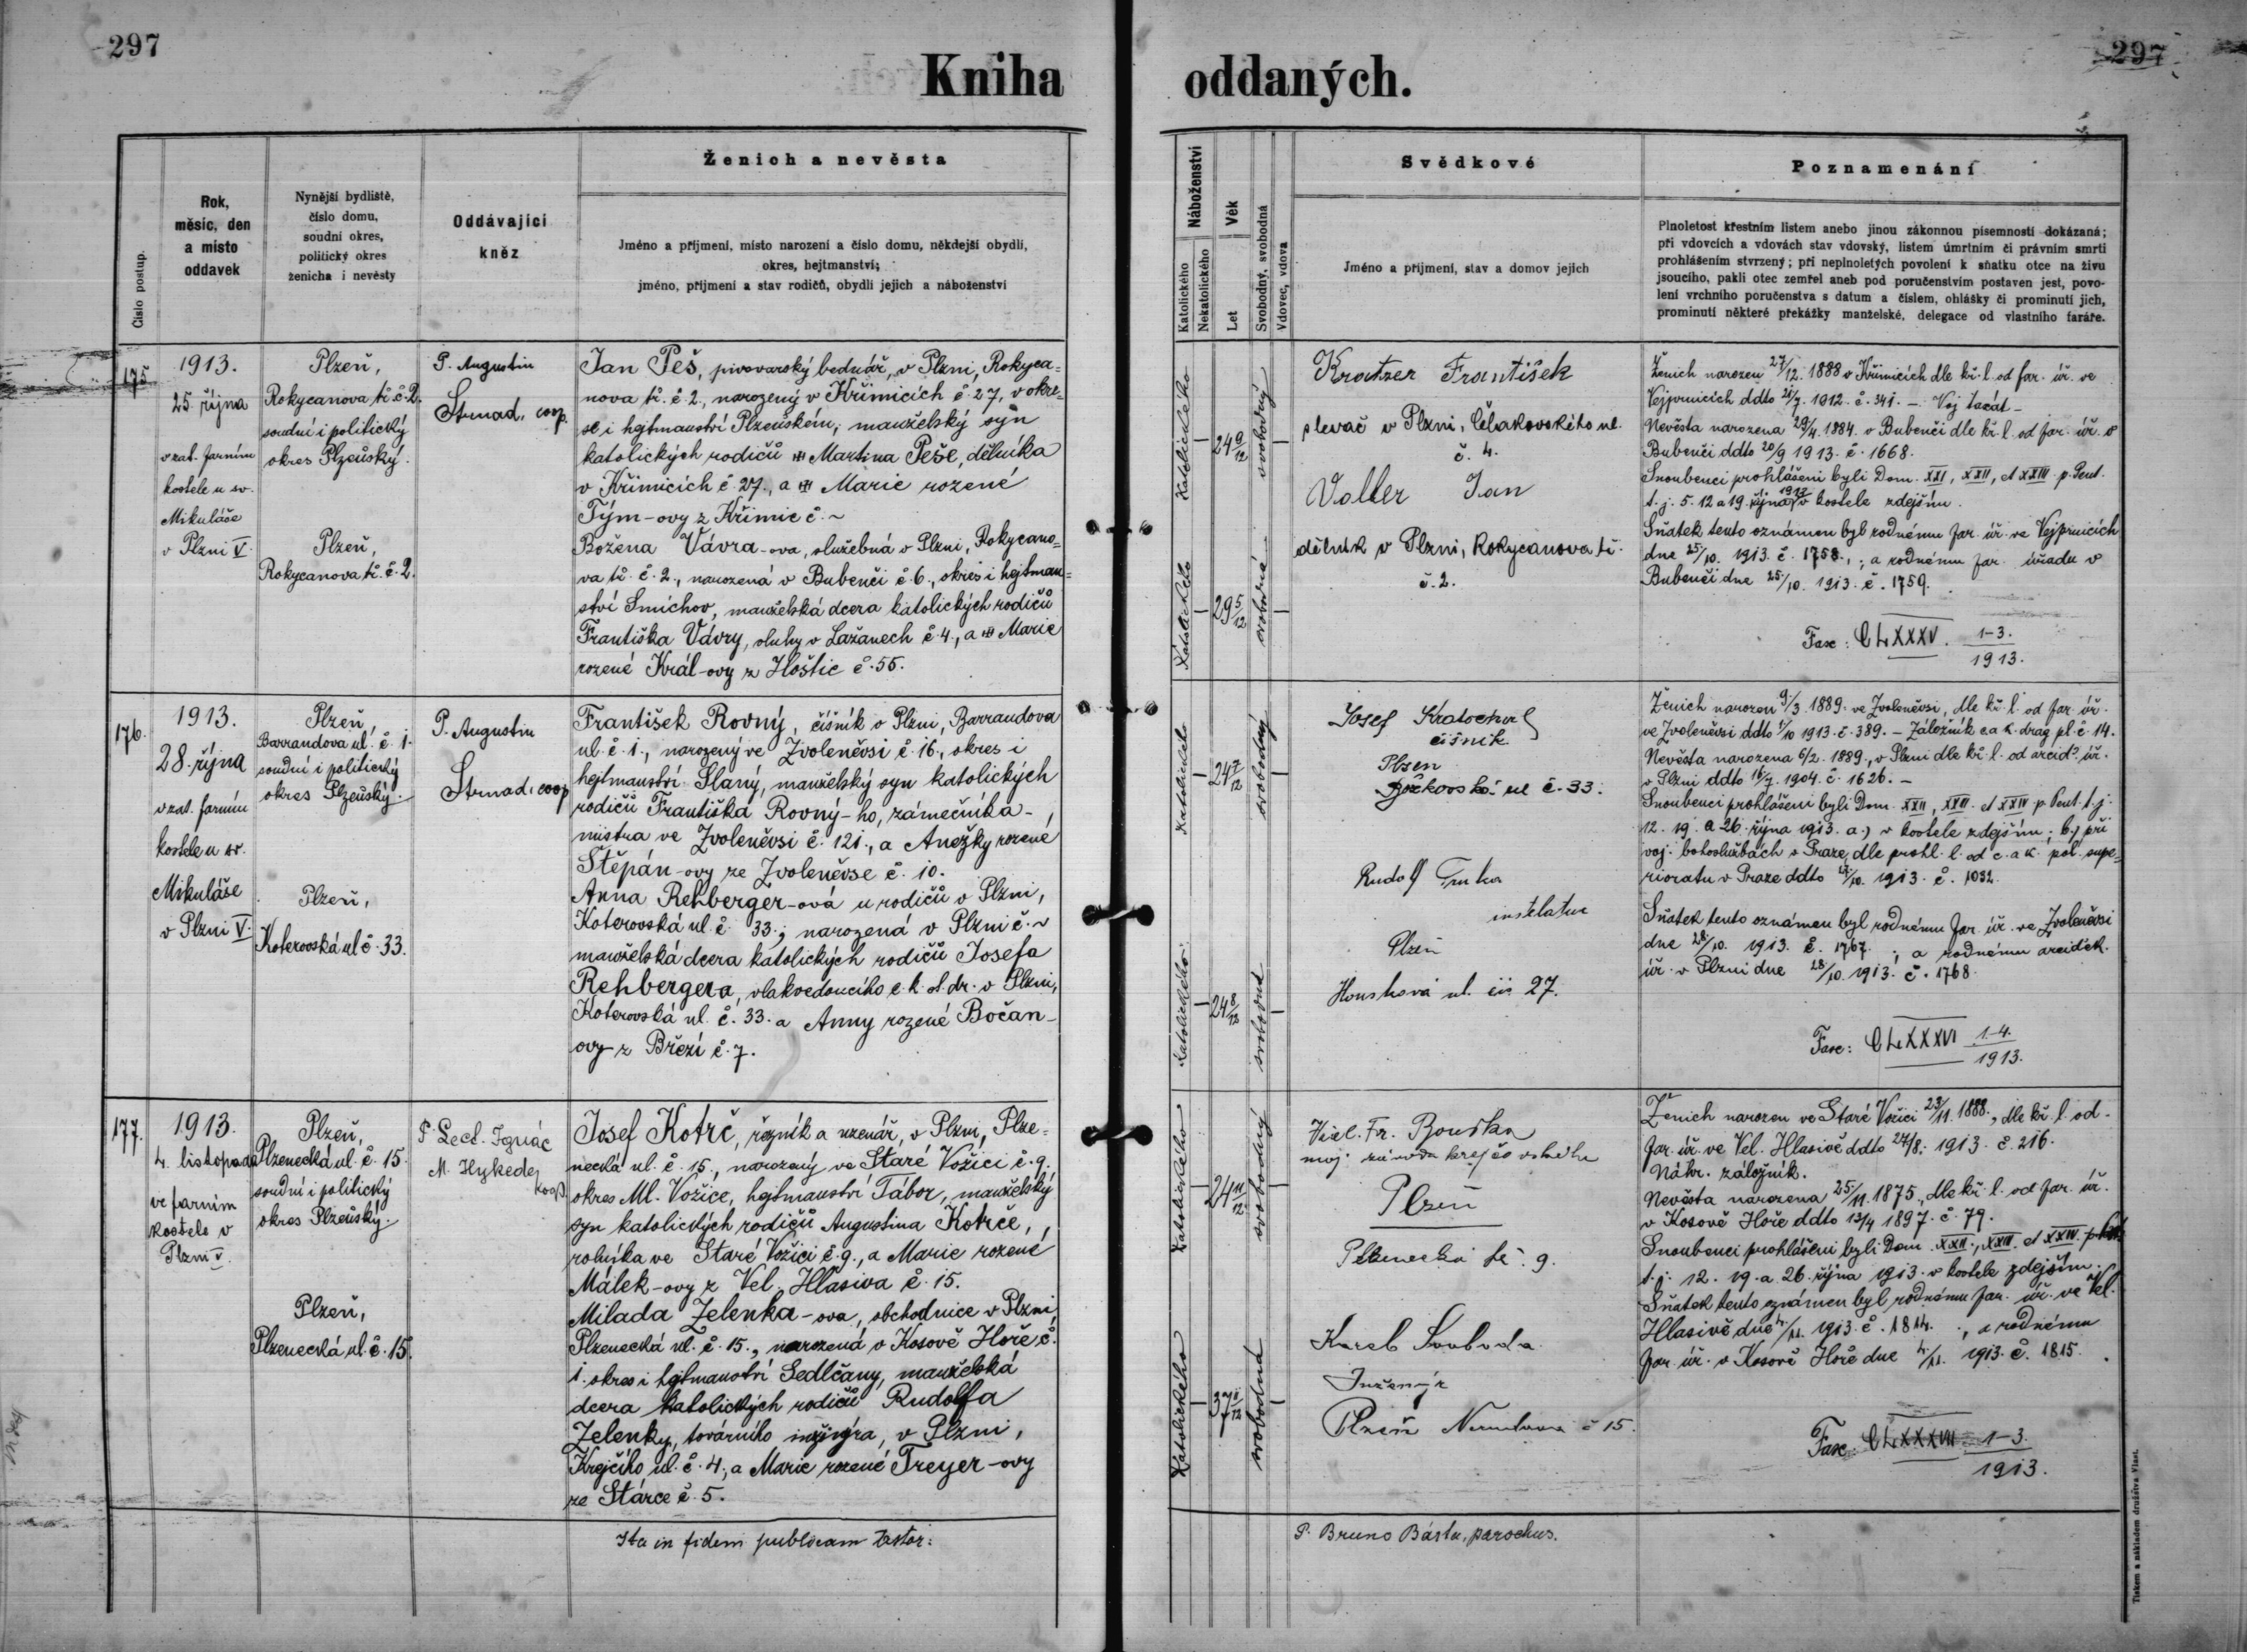 297
297
Kniha oddaných.
Číslo postup.
Rok,
měsíc, den
a místo
oddavek
Nynější bydliště,
číslo domu,
soudní okres,
politický okres
ženicha i nevěsty
Oddávající
kněz
Ženich a nevěsta
Jméno a příjmení, místo narození a číslo domu, někdejší obydlí,
okres, hejtmanství;
jméno, příjmení a stav rodičů, obydlí jejich a náboženství
Náboženství
Katolického
Nekatolického
Věk
Let
Svobodný, svobodná
Vdovec, vdova
Svědkové
Jméno a příjmení, stav a domov jejich
Poznamenání
Plnoletost křestním listem anebo jinou zákonnou písemností dokázaná;
při vdovcích a vdovách stav vdovský, listem úmrtním či právním smrti
prohlášením stvrzený; při neplnoletých povolení k sňatku otce na živu
jsoucího, pakli otec zemřel aneb pod poručenstvím postaven jest, povo-
lení vrchního poručenstva s datum a číslem, ohlášky či prominutí jich,
prominutí některé překážky manželské, delegace od vlastního faráře.
175
1913.
25. října
v zat. farním
kostele u sv.
Mikuláše
v Plzni V.
Plzeň,
Rokycanova tř. č. 2.
soudní i politický
okres Plzeňský.
Plzeň,
Rokycanova tř. č. 2.
P. Augustin
Strnad, coop.
Jan Peš, pivovarský bednář, v Plzni, Rokyca=
nova tř. č. 2., narozený v Křimicích č. 27, v okre=
se i hejtmanství Plzeňském, manželský syn
katolických rodičů Martina Peše, dělníka
v Křimicích č. 27., a Marie rozené
Tým-ovy z Křimic č. ~
Božena Vávra-ova, služebná v Plzni, Rokycano=
va tř. č. 2., narozená v Bubenči č. 6., okres i hejtman=
ství Smíchov, manželská dcera katolických rodičů
Františka Vávry, sluhy v Lažanech č. 4., a Marie
rozené Král-ovy z Hoštic č. 55.
Katolického
24 9/12
svobodný
Katolického
29 5/12
svobodná
Kratzer František
slevač v Plzni, Čelakovského ul.
č. 4.
Valler Jan
dělník v Plzni, Rokycanova tř.
č. 2.
Ženich narozen 27/12. 1888 v Křimicích dle kř. l. od far. úř. ve
Vejprnicích ddto 21/7. 1912. č. 341. –
Nevěsta narozena 29/4. 1884. v Bubenči dle kř. l. od far. úř. v
Bubenči ddto 20/9 1913. č. 1668.
Snoubenci prohlášeni byli Dom. XXI, XXII, et XXIII p. Pent.
t. j. 5. 12 a 19. října 1913 v kostele zdejším.
Sňatek tento oznámen byl rodnému far. úř. ve Vejprnicích
dne 25/10. 1913. č. 1758., ; a rodnému far. úřadu v
Bubenči dne 25/10. 1913. č. 1759.
Fasc: CLXXXV. 1-3.
1913.
176.
1913.
28. října
v zat. farním
kostele u sv.
Mikuláše
v Plzni V.
Plzeň,
Barrandova ul. č. 1.
soudní i politický
okres Plzeňský.
Plzeň,
Koterovská ul. č. 33.
P. Augustin
Strnad, coop
František Rovný, číšník v Plzni, Barrandova
ul. č. 1., narozený ve Zvoleněvsi č. 16., okres i
hejtmanství Slaný, manželský syn katolických
rodičů Františka Rovný-ho, zámečníka-
mistra ve Zvoleněvsi č. 121., a Anežky rozené
Štěpán-ovy ze Zvoleněvse č. 10.
Anna Rehberger-ová u rodičů v Plzni,
Koterovská ul. č. 33., narozená v Plzni č. ~
manželská dcera katolických rodičů Josefa
Rehbergera, vlakvedoucího c. k. st. dr. v Plzni,
Koterovská ul. č. 33. a Anny rozené Bočan-
ovy z Březí č. 7.
Katolického
24 7/12
svobodný
Katolického
24 8/12
svobodná
Josef Kratochvíl
číšník
Plzen
ul. č. 33.
Rudolf
Plzeň
ul. čís 27.
Ženich narozen 9/3. 1889. ve Zvoleněvsi, dle kř. l. od far. úř.
ve Zvoleněvsi ddto 1/10 1913. č. 389. – Záložník c. a k. drag. pl. č. 14.
Nevěsta narozena 6/2. 1889., v Plzni dle kř. l. od arcid. úř.
v Plzni ddto 16/7. 1904. č. 1626. –
Snoubenci prohlášeni byli Dom. XXII, XXIII. et XXIV p. Pent. t. j.
12. 19. a 26. října 1913. a.) v kostele zdejším; b.) při
voj. bohoslužbách v Praze, dle prohl. l. od c. a k. pol. supe=
rioratu v Praze ddto 27/10. 1913. č. 1032.
Sňatek tento oznámen byl rodnému far. úř. ve Zvoleněvsi
dne 28/10. 1913. č. 1767. ; a rodnému arciděk.
úř. v Plzni dne 28/10. 1913. č. 1768.
Fasc: CLXXXVI 1-4.
1913.
177.
1913.
4. listopadu
ve farním
kostele v
Plzni V.
Plzeň,
Plzenecká ul. č. 15.
soudní i politický
okres Plzeňský.
Plzeň,
Plzenecká ul. č. 15.
P. Lect. Ignác
M. Hykeda,
koop.
Josef Kotrč, řezník a uzenář, v Plzni, Plze=
necká ul. č. 15., narozený ve Staré Vožici č. 9.
okres Ml. Vožice, hejtmanství Tábor, manželský
syn katolických rodičů Augustina Kotrče,
rolníka ve Staré Vožici č. 9., a Marie rozené
Málek-ovy z Vel. Hlasiva č. 15.
Milada Zelenka-ova, obchodnice v Plzni,
Plzenecká ul. č. 15., narozená v Kosově Hoře č.
1. okres i hejtmanství Sedlčany, manželská
dcera katolických rodičů Rudolfa
Zelenky, továrního inženýra, v Plzni,
Krejčího ul. č. 4., a Marie rozené Treyer-ovy
ze Stárce č. 5.
Katolického
24 11/12
svobodný
Katolického
37 11/12
svobodná
Fr. Bouška
maj. závodu krejčovského
Plzeň
Plzenecká tř. 9.
Karel Svoboda
Inženýr
Plzeň Nerudova č 15.
Ženich narozen ve Staré Vožici 23/11. 1888., dle kř. l. od
far. úř. ve Vel. Hlasivě ddto 27/8. 1913. č. 216.
Náhr. záložník.
Nevěsta narozena 25/11. 1875., dle kř. l. od far. úř.
v Kosově Hoře ddto 13/4 1897. č. 79.
Snoubenci prohlášeni byli Dom. XXII., XXIII. et XXIV. p. Pent.
t. j. 12. 19. a 26. října 1913. v kostele zdejším.
Sňatek tento oznámen byl rodnému far. úř. ve Vel.
Hlasivě dne 4/11. 1913. č. 1814. , a rodnému
far. úř. v Kosově Hoře dne 4/11. 1913. č. 1815.
Fasc: CLXXXVII 1-3.
1913.
Ita in fidem publicam testor:
P. Bruno Bárta, parochus.
Tiskem a nákladem družstva Vlast.